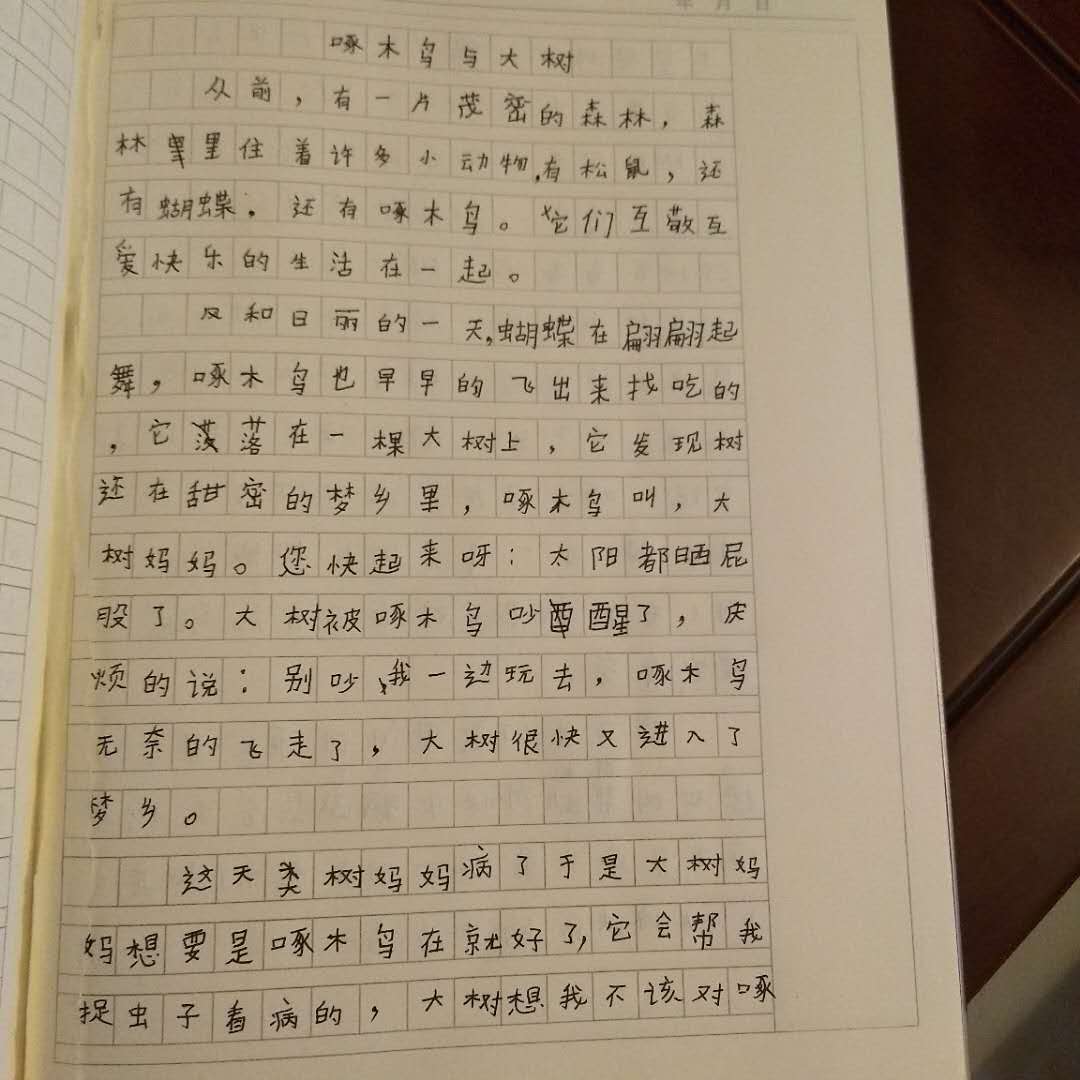 年 月 日
啄木鸟与大树
从前，有一片茂密的森林，森
林里住着许多小动物，有松鼠，还
有蝴蝶。还有啄木鸟。它们互敬互
爱快乐的生活在一起。
风和日丽的一天，蝴蝶在翩翩起
舞，啄木鸟也早早的飞出来找吃的
，它落在一棵大树上，它发现树
还在甜密的梦乡里，啄木鸟叫，大
树妈妈。您快起来呀：太阳都晒屁
股了。大树被啄木鸟吵醒了，厌
烦的说：别吵我一边玩去，啄木鸟
无奈的飞走了，大树很快又进入了
梦乡。
这天大树妈妈病了于是大树妈
妈想要是啄木鸟在就好了，它会帮我
捉虫子看病的，大树想我不该对啄